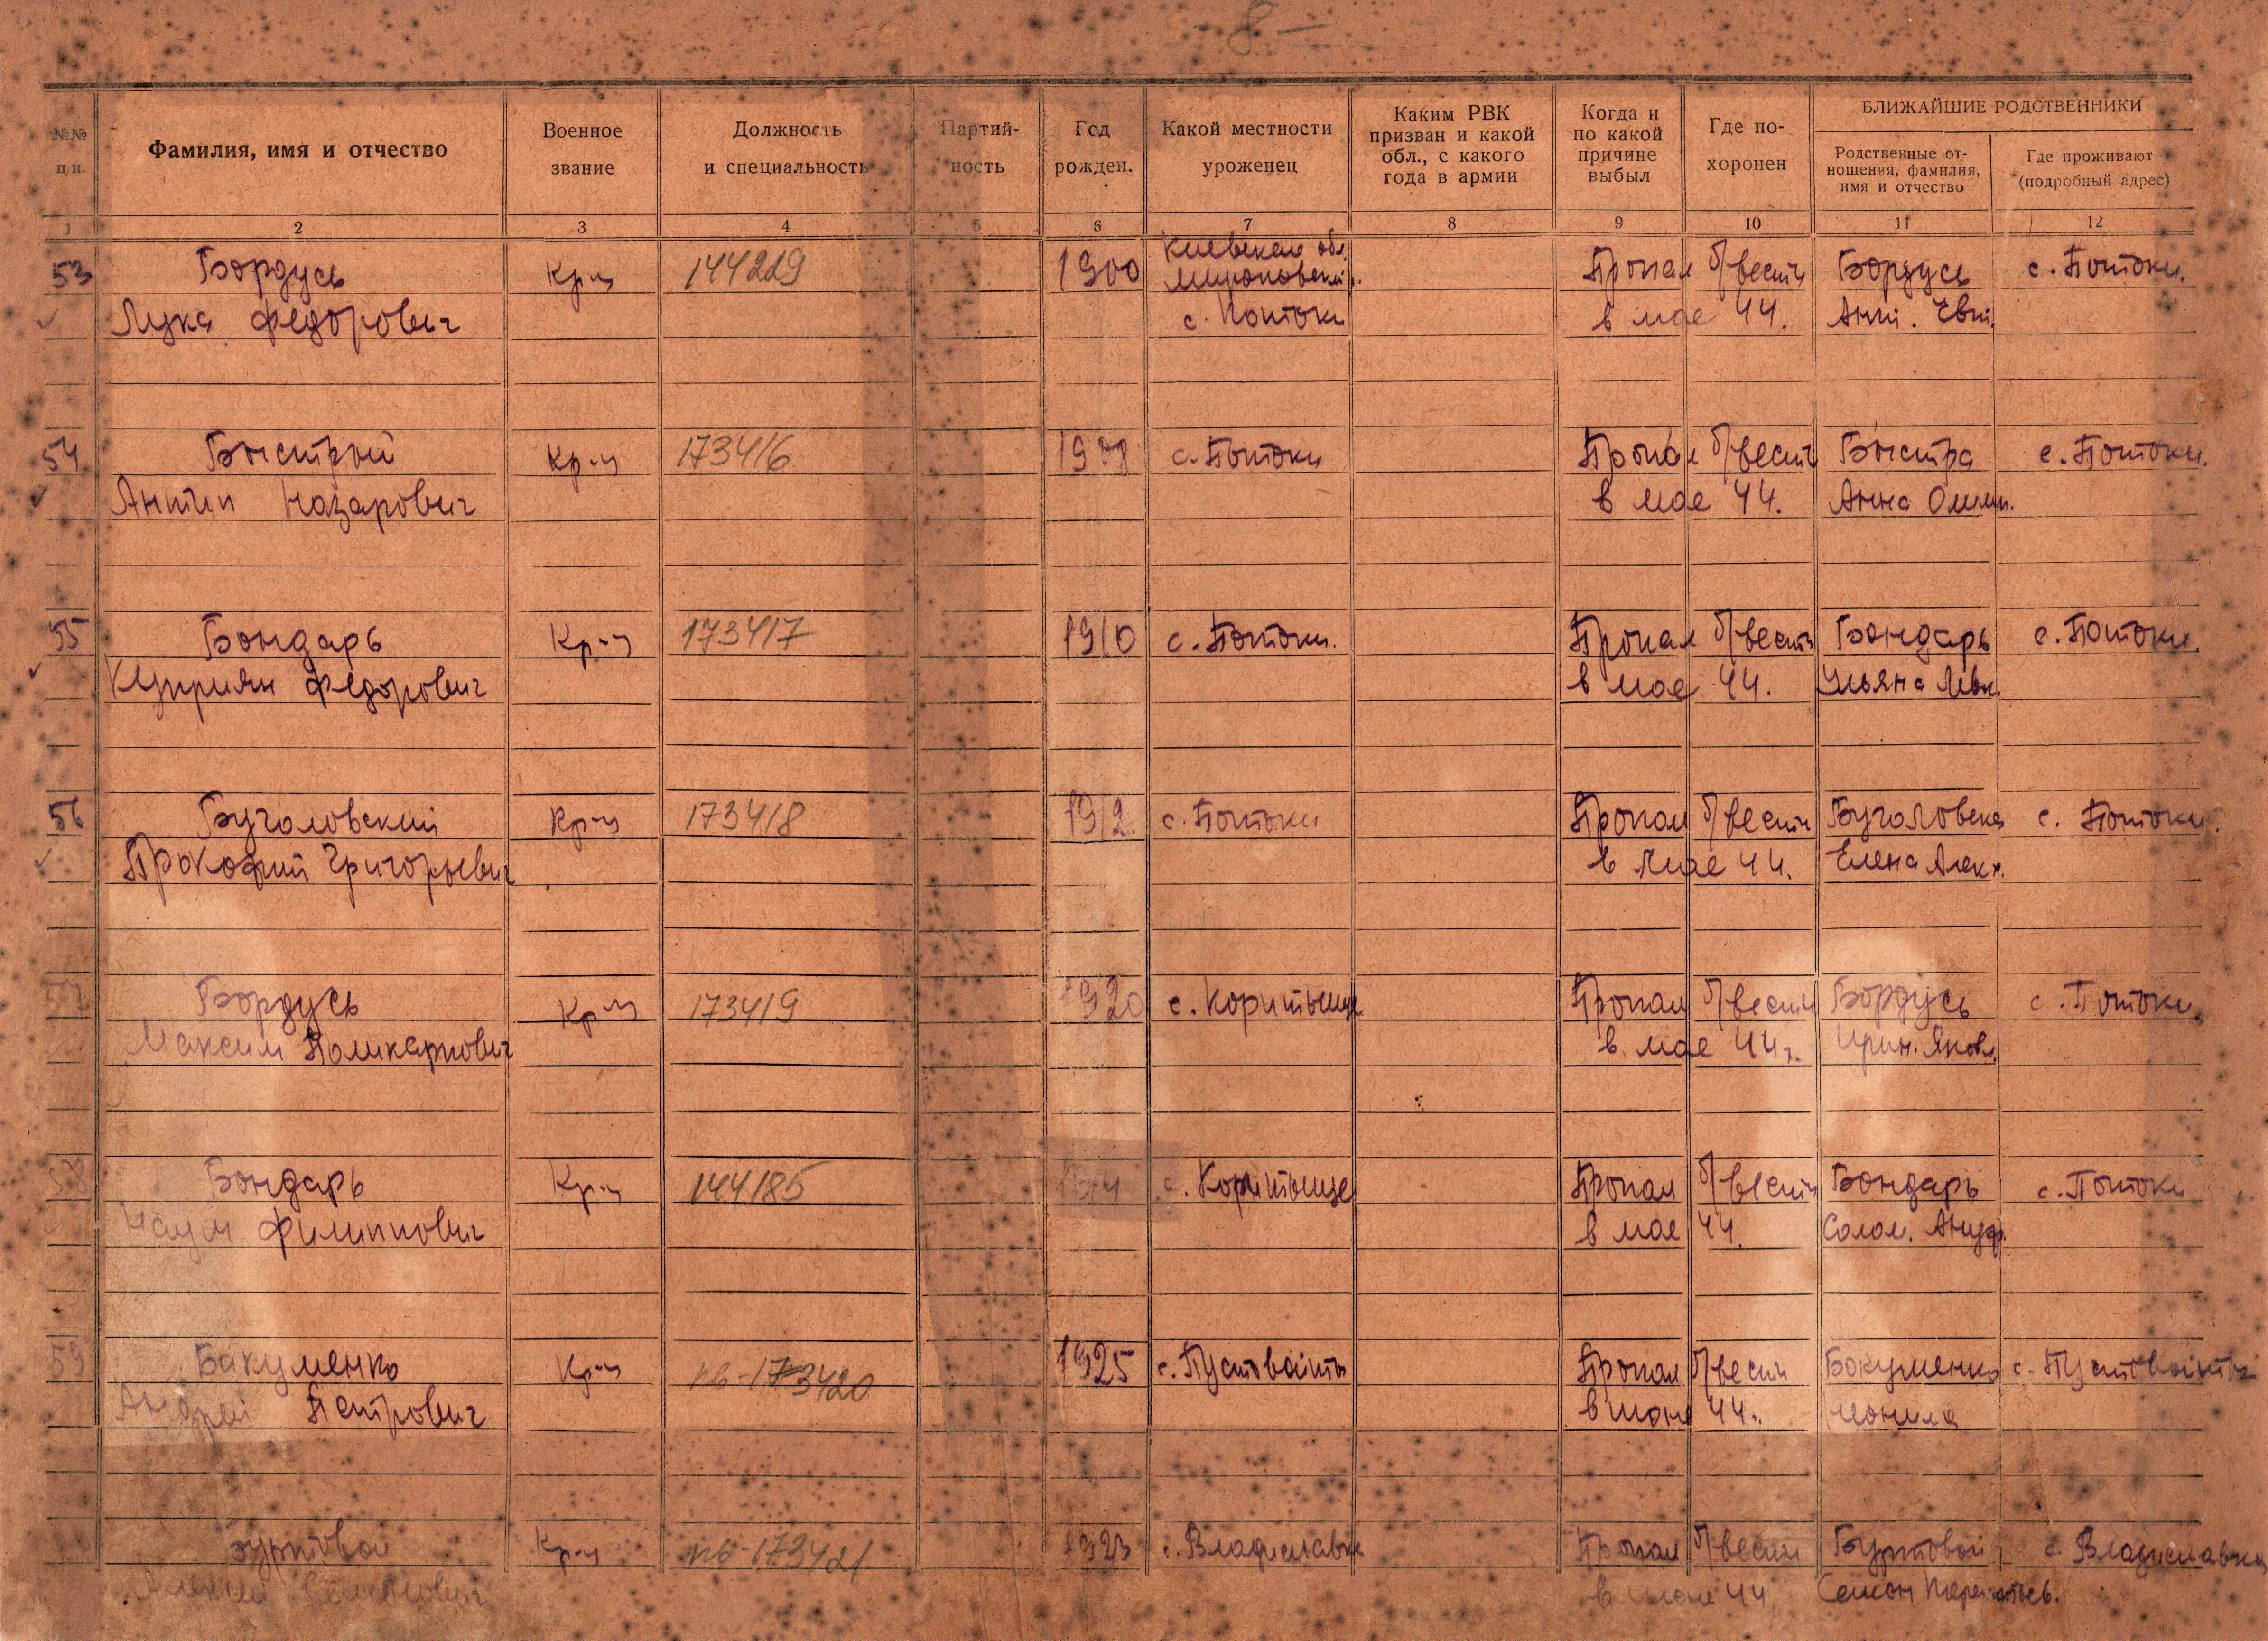 - 8 -
№№ п/п.
Фамилия, имя и отчество
Военное звание
Должность и специальность
Партийность
Год рожден.
Какой местности уроженец
Каким РВК призван и какой обл., с какого года в армии
Когда и по какой причине выбыл
Где похоронен
БЛИЖАЙШИЕ РОДСТВЕННИКИ
Родственные отношения, фамилия, имя и отчество
Где проживают (подробный адрес)
1 2 3 4 5 6 7 8 9 10 11 12
Киевская обл.
53 Бордусь Кр-ц 144229 1900 Мироновский р. Пропал б/вести Бордусь с. Потоки.
Лука Федорович с. Потоки в мае 44. Ант. Евт.
54 Быстрый Кр-ц 173416 с. Потоки Пропал б/вести Быстра с. Потоки.
Антип Назарович в мае 44. Анна
55 Бондарь Кр-ц 173417 1910 с. Потоки. Пропал б/вести Бондарь с. Потоки.
Куприян Федорович в мае 44. Ульяна
56 Бугаловский Кр-ц 173418 1912. с. Потоки Пропал б/вести Бугаловска с. Потоки.
Прокофий Григорьевич в мае 44. Елена Алекс.
57 Бордусь Кр-ц 173419 1920 с. Коритыще Пропал б/вести Бордусь с. Потоки
Максим Поликарпович в мае 44г. Ирин. Яковл.
58 Бондарь Кр-ц 144185 с. Коритыще Пропал б/вести Бондарь с. Потоки
Наум Филиппович в мае 44. Солом.
59 Бакуменко Кр-ц пб-173420 1925 с. Пустовойты Пропал б/вести Бакуменко с. Пустовойты
Андрей Петрович 44.
Буртовой Кр-ц пб-173421 1923 с. Владиславка Пропал б/вести Буртовой с. Владиславка
Алексей Семенович 44 Семен Терентьев.